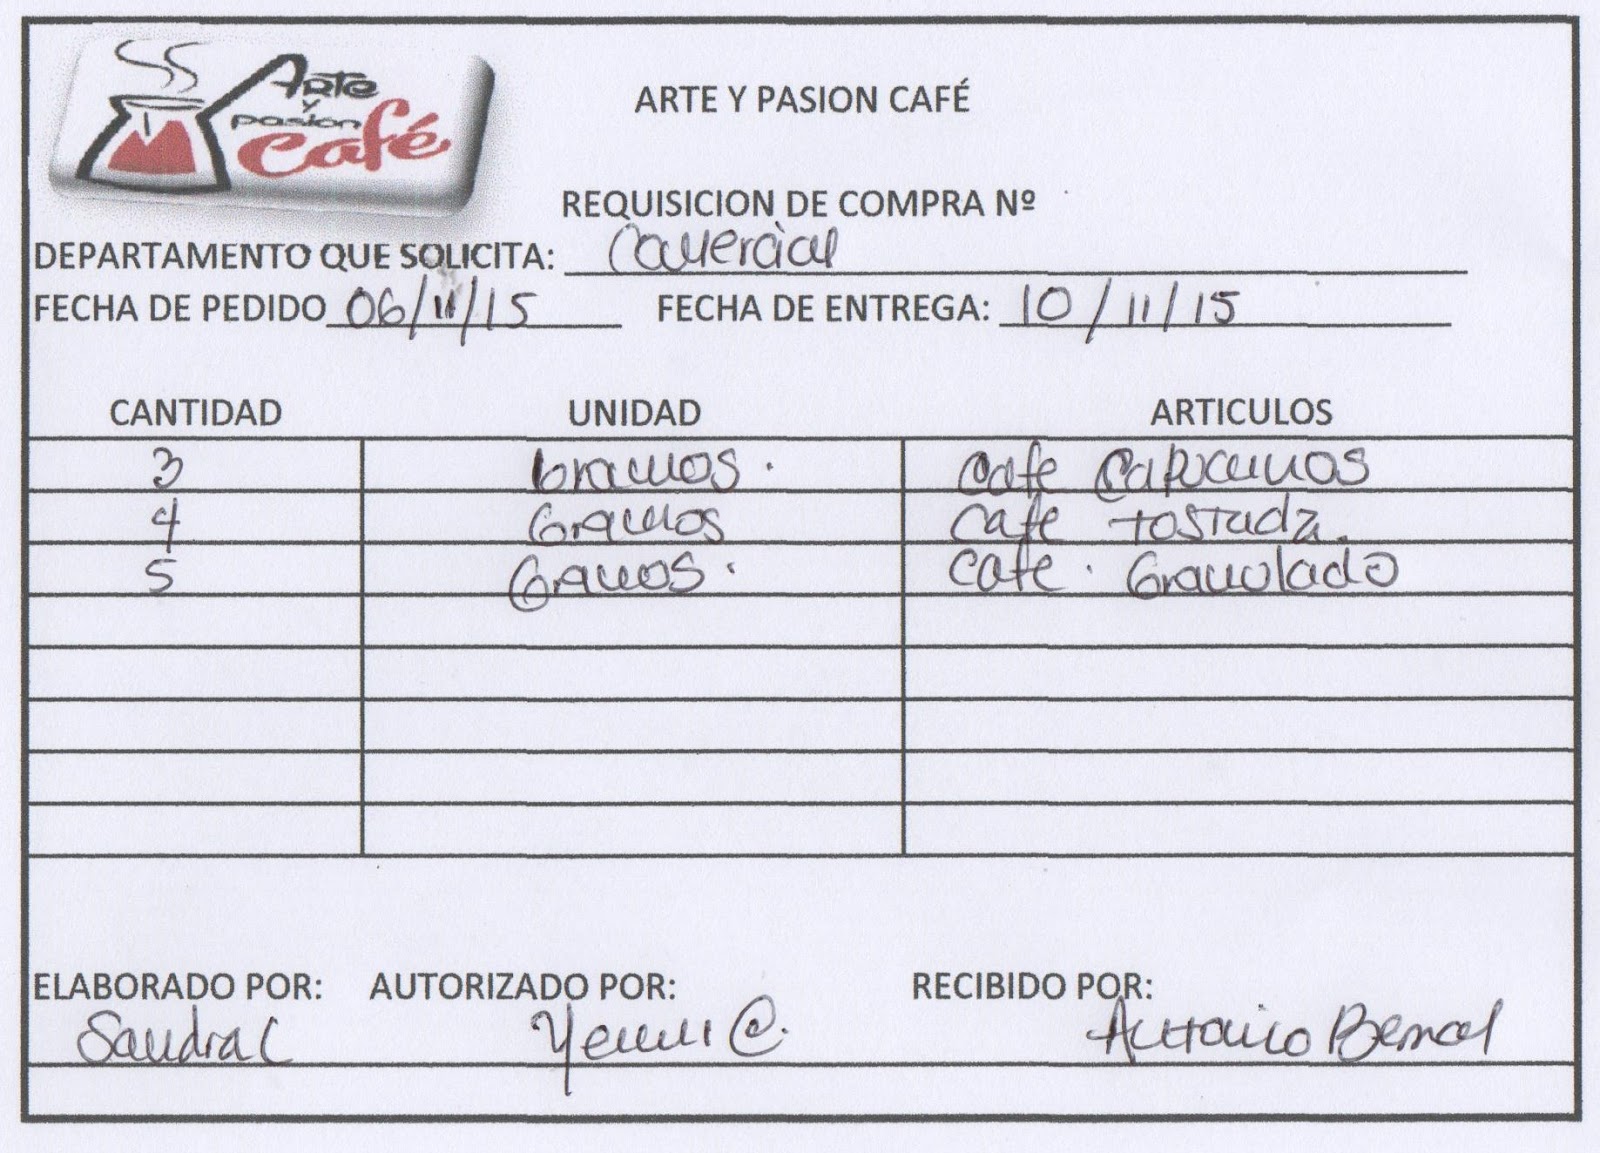 Arte
y
pasion
café
ARTE Y PASION CAFÉ
REQUISICION DE COMPRA Nº
DEPARTAMENTO QUE SOLICITA: Comercial
FECHA DE PEDIDO 06/11/15 FECHA DE ENTREGA: 10/11/15
CANTIDAD UNIDAD ARTICULOS
3 Gramos. Cafe Capuxinos
4 Gramos Cafe tostada.
5 Gramos. Cafe. Granulado
ELABORADO POR: AUTORIZADO POR: RECIBIDO POR:
Sandra C Yenni C. Antonio Bernal